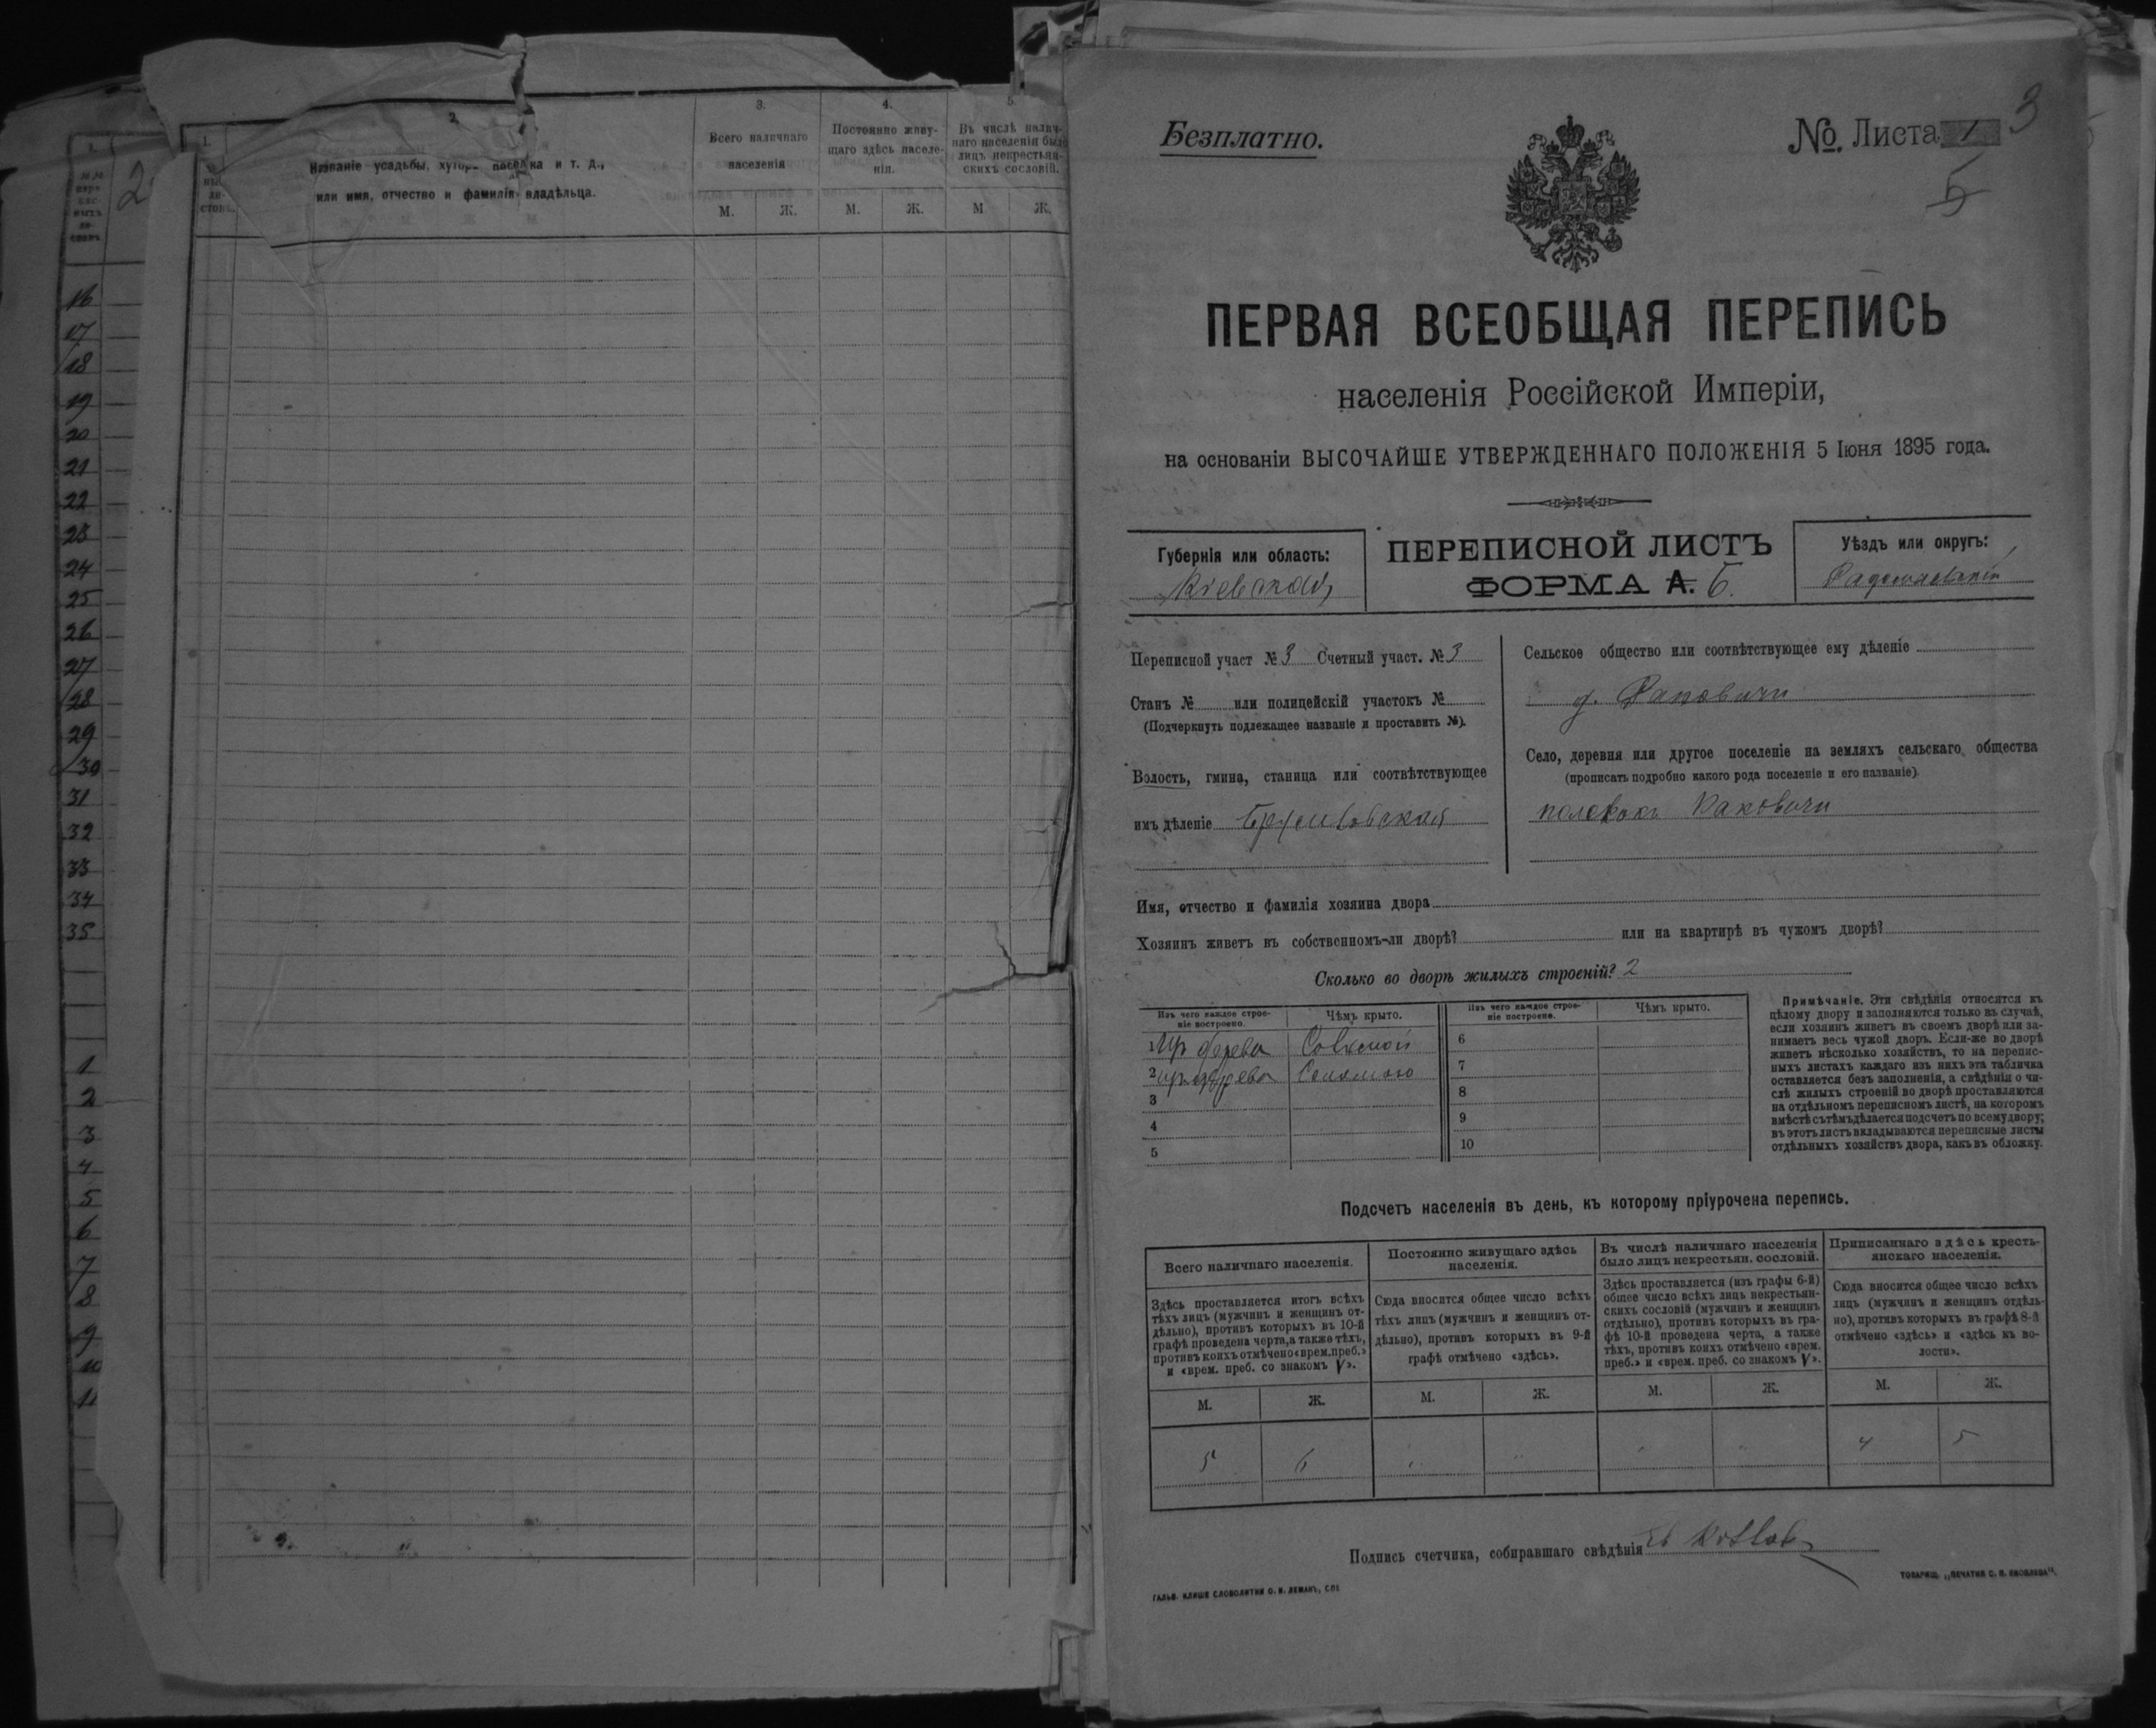 1.
№№
пере-
пис-
ныхъ
ли-
стовъ
2
16
17
18
19
20
21
22
23
24
25
26
27
28
29
30
31
32
33
34
35
1
2
3
4
5
6
7
8
9
10
11
1. 2. 3. 4. 5.
Названіе усадьбы, хутора поселка и т. д.,
или имя, отчество и фамилія владѣльца.
Всего наличнаго
населенія
Постоянно живу-
щаго здѣсь населе-
нія.
Въ числѣ налич-
наго населенія было
лицъ некрестьян-
скихъ сословій.
М. Ж. М. Ж. М Ж.
Безплатно.
№ Листа 1 3
5
ПЕРВАЯ ВСЕОБЩАЯ ПЕРЕПИСЬ
населенія Россійской Имперіи,
на основаніи ВЫСОЧАЙШЕ УТВЕРЖДЕННАГО ПОЛОЖЕНІЯ 5 Іюня 1895 года.
Губернія или область:
Кіевская
ПЕРЕПИСНОЙ ЛИСТЪ
ФОРМА А. Б.
Уѣздъ или округъ:
Радомысльскій
Переписной участ № 3 Счетный участ. № 3
Станъ № или полицейскій участокъ №
(Подчеркнуть подлежащее названіе и проставить №).
Волость, гмина, станица или соотвѣтствующее
имъ дѣленіе
Сельское общество или соотвѣтствующее ему дѣленіе
д. Раковичи
Село, деревня или другое поселеніе на земляхъ сельскаго общества
(прописать подробно какого рода поселеніе и его названіе).
Раковичи
Имя, отчество и фамилія хозяина двора
Хозяинъ живетъ въ собственномъ-ли дворѣ? или на квартирѣ въ чужомъ дворѣ?
Сколько во дворѣ жилыхъ строеній? 2
Изъ чего каждое строе-
ніе построено.
Чѣмъ крыто.
Изъ чего каждое строе-
ніе построено.
Чѣмъ крыто.
1 дерева 6
2 дерева Соломою 7
3 8
4 9
5 10
Примѣчаніе. Эти свѣдѣнія относятся къ
цѣлому двору и заполняются только въ случаѣ,
если хозяинъ живетъ въ своемъ дворѣ или за-
нимаетъ весь чужой дворъ. Если-же во дворѣ
живетъ нѣсколько хозяйствъ, то на перепис-
ныхъ листахъ каждаго изъ нихъ эта табличка
оставляется безъ заполненія, а свѣдѣнія о чи-
слѣ жилыхъ строеній во дворѣ проставляются
на отдѣльномъ переписномъ листѣ, на которомъ
вмѣстѣ съ тѣмъ дѣлается подсчетъ по всему двору;
въ этотъ листъ вкладываются переписные листы
отдѣльныхъ хозяйствъ двора, какъ въ обложку.
Подсчетъ населенія въ день, къ которому пріурочена перепись.
Всего наличнаго населенія.
Здѣсь проставляется итогъ всѣхъ
тѣхъ лицъ (мужчинъ и женщинъ от-
дѣльно), противъ которыхъ въ 10-й
графѣ проведена черта, а также тѣхъ,
противъ коихъ отмѣчено «врем. преб.»
и «врем. преб. со знакомъ V».
Постоянно живущаго здѣсь
населенія.
Сюда вносится общее число всѣхъ
тѣхъ лицъ (мужчинъ и женщинъ от-
дѣльно), противъ которыхъ въ 9-й
графѣ отмѣчено «здѣсь».
Въ числѣ наличнаго населенія
было лицъ некрестьян. сословій.
Здѣсь проставляется (изъ графы 6-й)
общее число всѣхъ лицъ некрестьян-
скихъ сословій (мужчинъ и женщинъ
отдѣльно), противъ которыхъ въ гра-
фѣ 10-й проведена черта, а также
тѣхъ, противъ коихъ отмѣчено «врем.
преб.» и «врем. преб. со знакомъ V».
Приписаннаго здѣсь кресть-
янскаго населенія.
Сюда вносится общее число всѣхъ
лицъ (мужчинъ и женщинъ отдѣль-
но), противъ которыхъ въ графѣ 8-й
отмѣчено «здѣсь» и «здѣсь къ во-
лости».
М. Ж. М. Ж. М. Ж. М. Ж.
5 6 " " " " 4 5
Подпись счетчика, собиравшаго свѣдѣнія
ГАЛЬВ. КЛИШЕ СЛОВОЛИТНИ О. И. ЛЕМАНЪ, СПБ
ТОВАРИЩ. „ПЕЧАТНЯ С. П. ЯКОВЛЕВА".